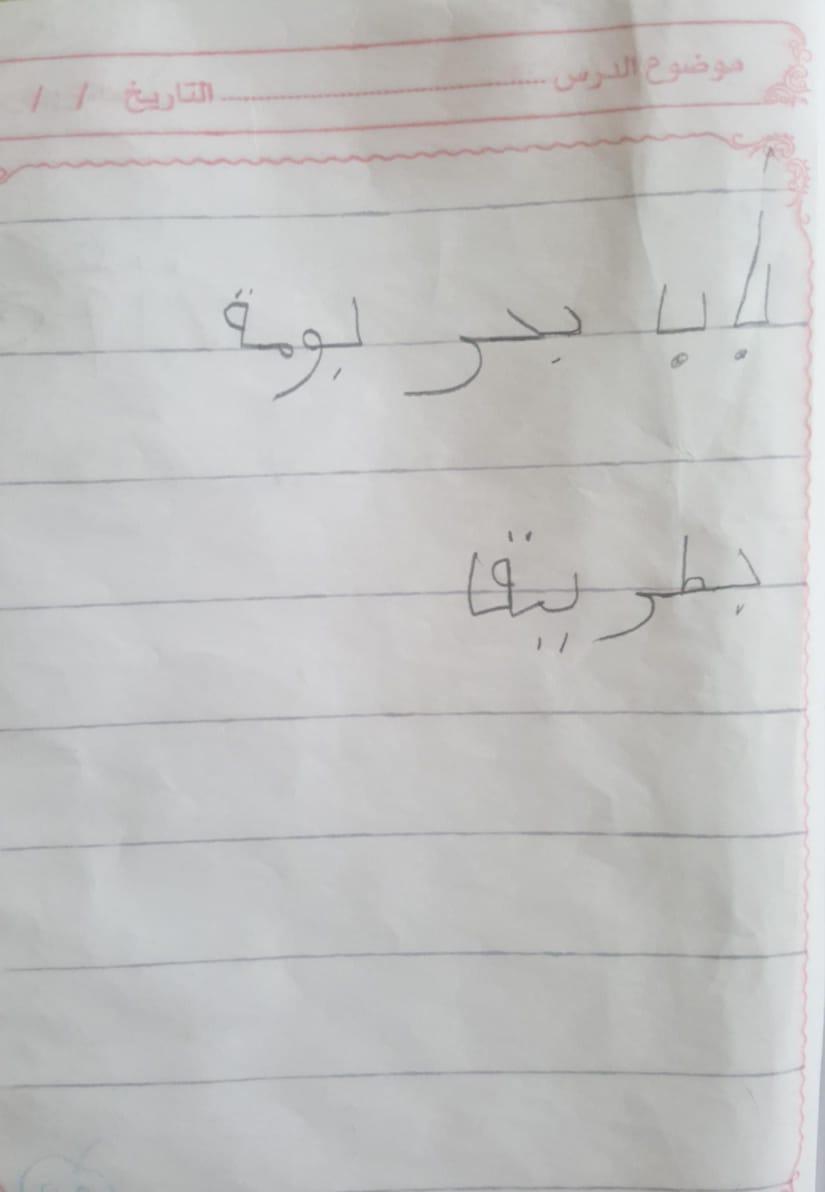 موضوع الدرس ........................ التاريخ / /
بابا بحر بومة
بطريقا